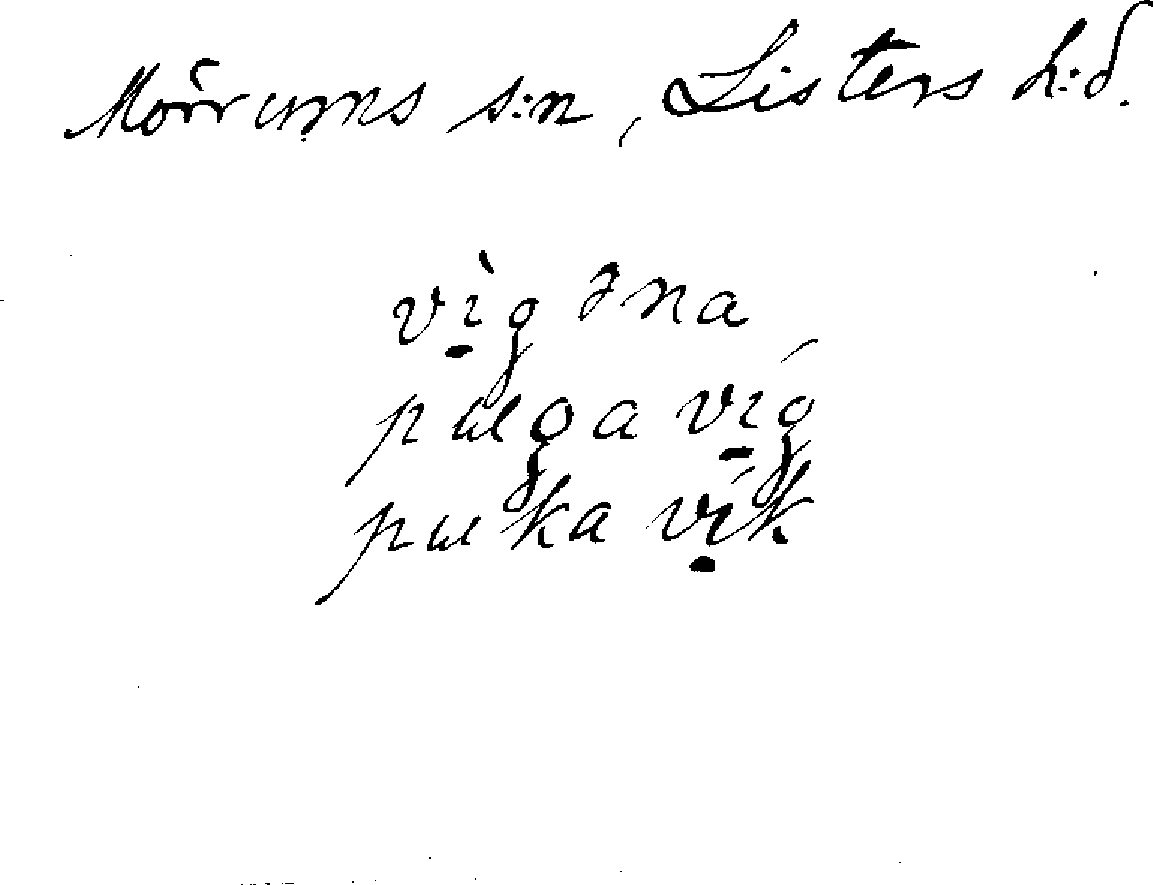 Mörrums s:n, Listers h:d.
vìgəna
pɯga víg
pɯka vík